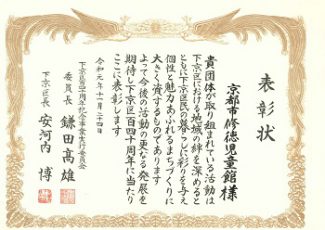 表彰状
京都市修徳児童館様
貴団体が取り組まれている活動は
下京区における地域の絆を深めると
ともに下京区民の暮らしに彩りを与え
個性と魅力あふれるまちづくりに
大きく資するものであります
よって今後の活動の更なる発展を
期待し下京区百四十周年に当たり
ここに表彰します
令和元年十一月二十四日
下京区百四十周年記念事業実行委員会
委員長 鎌田高雄
下京区長 安河内 博